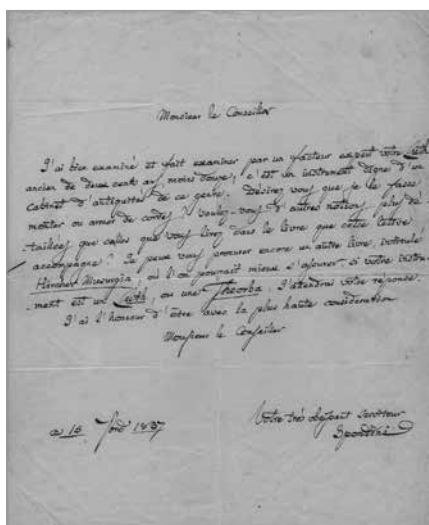 Monsieur le Conseiller
J'ai bien examiné et fait examiner par un facteur expert votre Luth
ancien de deux cents ans moins douze; c'est un instrument digne d'un
cabinet d'antiquités de ce genre. Désirez vous que je le fasse
monter ou armer de cordes? voulez-vous d'autres notions plus dé-
taillées que celles que vous lirez dans le livre que cette lettre
accompagne? Je peux vous procurer encore un autre livre, intitulé
Musurgia, où l'on pourrait mieux s'assurer, si votre instru-
ment est un Luth, ou une Theorba. J'attendrai votre réponse.
J'ai l'honneur d'être avec la plus haute considération
Monsieur le Conseiller
Votre très obéissant serviteur
ce 15 1837 Spontini